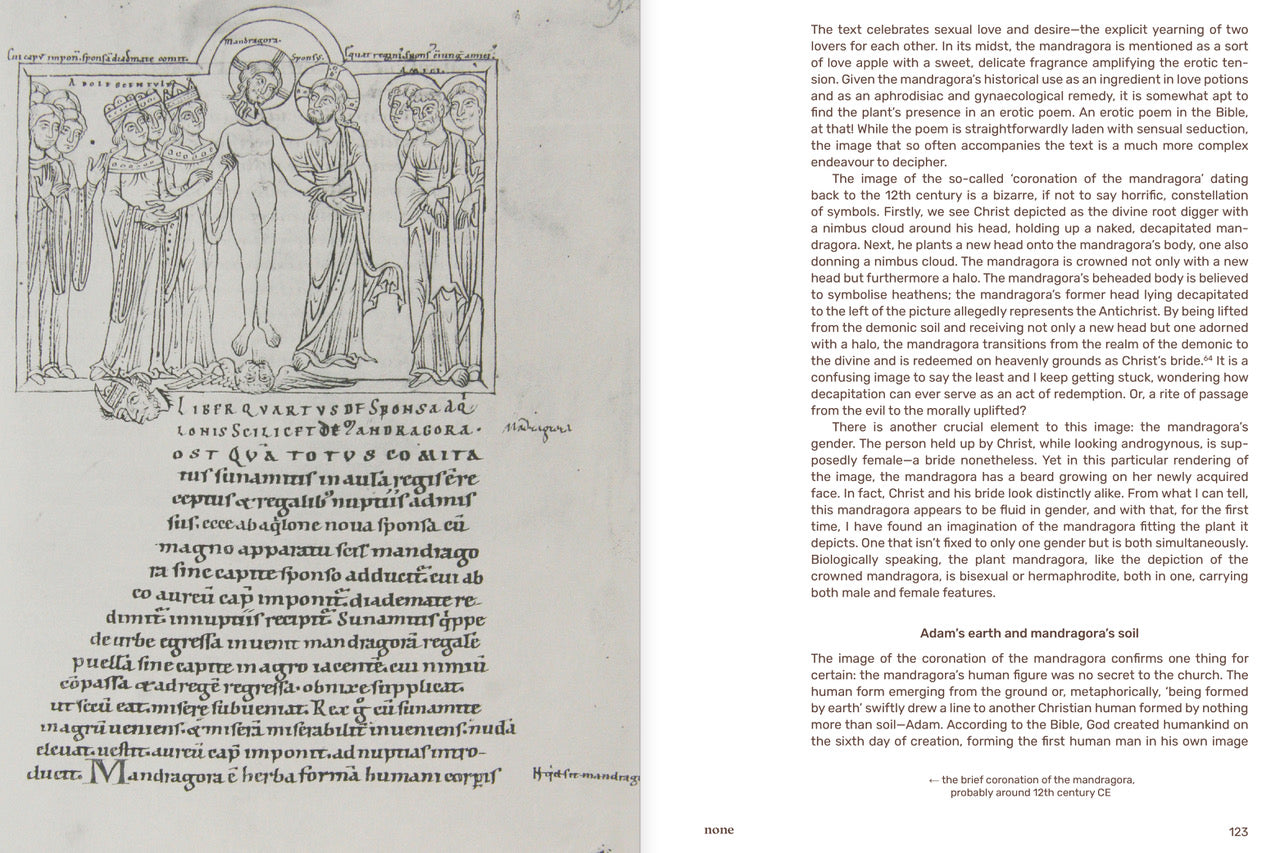 Mandragora.
Sponsus
AMICI.
LIBER QVARTVS DE SPONSA AQI
LONIS SCILICET DE MANDRAGORA.
Mādragora
OST QVĀ TOTVS COMITA
tus sunamitis in aula regis ēre
ceptus & regalib' nuptiis admis
sus. ecce ab aqͥlone noua sponsa cū
magno apparatu scil' mandrago
ra sine capite sponso adducit̄. cui ab
eo aureū cap̄ imponit̄. diademate re-
dimit̄. in nuptiis recipit̄. Sunamitis q̄ppe
de urbe egressa inuenit mandragorā regale
puellā sine capite in agro iacentē. cui nimiū
cōpassa & ad regē regressa. obnixe supplicat.
ut secū eat. misere subueniat. Rex g̊ cū sunamite
in agrū ueniens. & miserā miserabilit' inueniens. nudā
eleuat. uestit. aureū cap̄ imponit. ad nuptias intro-
ducit. Mandragora ē herba formā humani corp̄is
The text celebrates sexual love and desire—the explicit yearning of two
lovers for each other. In its midst, the mandragora is mentioned as a sort
of love apple with a sweet, delicate fragrance amplifying the erotic ten-
sion. Given the mandragora’s historical use as an ingredient in love potions
and as an aphrodisiac and gynaecological remedy, it is somewhat apt to
find the plant’s presence in an erotic poem. An erotic poem in the Bible,
at that! While the poem is straightforwardly laden with sensual seduction,
the image that so often accompanies the text is a much more complex
endeavour to decipher.
The image of the so-called ‘coronation of the mandragora’ dating
back to the 12th century is a bizarre, if not to say horrific, constellation
of symbols. Firstly, we see Christ depicted as the divine root digger with
a nimbus cloud around his head, holding up a naked, decapitated man-
dragora. Next, he plants a new head onto the mandragora’s body, one also
donning a nimbus cloud. The mandragora is crowned not only with a new
head but furthermore a halo. The mandragora’s beheaded body is believed
to symbolise heathens; the mandragora’s former head lying decapitated
to the left of the picture allegedly represents the Antichrist. By being lifted
from the demonic soil and receiving not only a new head but one adorned
with a halo, the mandragora transitions from the realm of the demonic to
the divine and is redeemed on heavenly grounds as Christ’s bride.⁶⁴ It is a
confusing image to say the least and I keep getting stuck, wondering how
decapitation can ever serve as an act of redemption. Or, a rite of passage
from the evil to the morally uplifted?
There is another crucial element to this image: the mandragora’s
gender. The person held up by Christ, while looking androgynous, is sup-
posedly female—a bride nonetheless. Yet in this particular rendering of
the image, the mandragora has a beard growing on her newly acquired
face. In fact, Christ and his bride look distinctly alike. From what I can tell,
this mandragora appears to be fluid in gender, and with that, for the first
time, I have found an imagination of the mandragora fitting the plant it
depicts. One that isn’t fixed to only one gender but is both simultaneously.
Biologically speaking, the plant mandragora, like the depiction of the
crowned mandragora, is bisexual or hermaphrodite, both in one, carrying
both male and female features.
Adam’s earth and mandragora’s soil
The image of the coronation of the mandragora confirms one thing for
certain: the mandragora’s human figure was no secret to the church. The
human form emerging from the ground or, metaphorically, ‘being formed
by earth’ swiftly drew a line to another Christian human formed by nothing
more than soil—Adam. According to the Bible, God created humankind on
the sixth day of creation, forming the first human man in his own image
← the brief coronation of the mandragora,
probably around 12th century CE
none
123